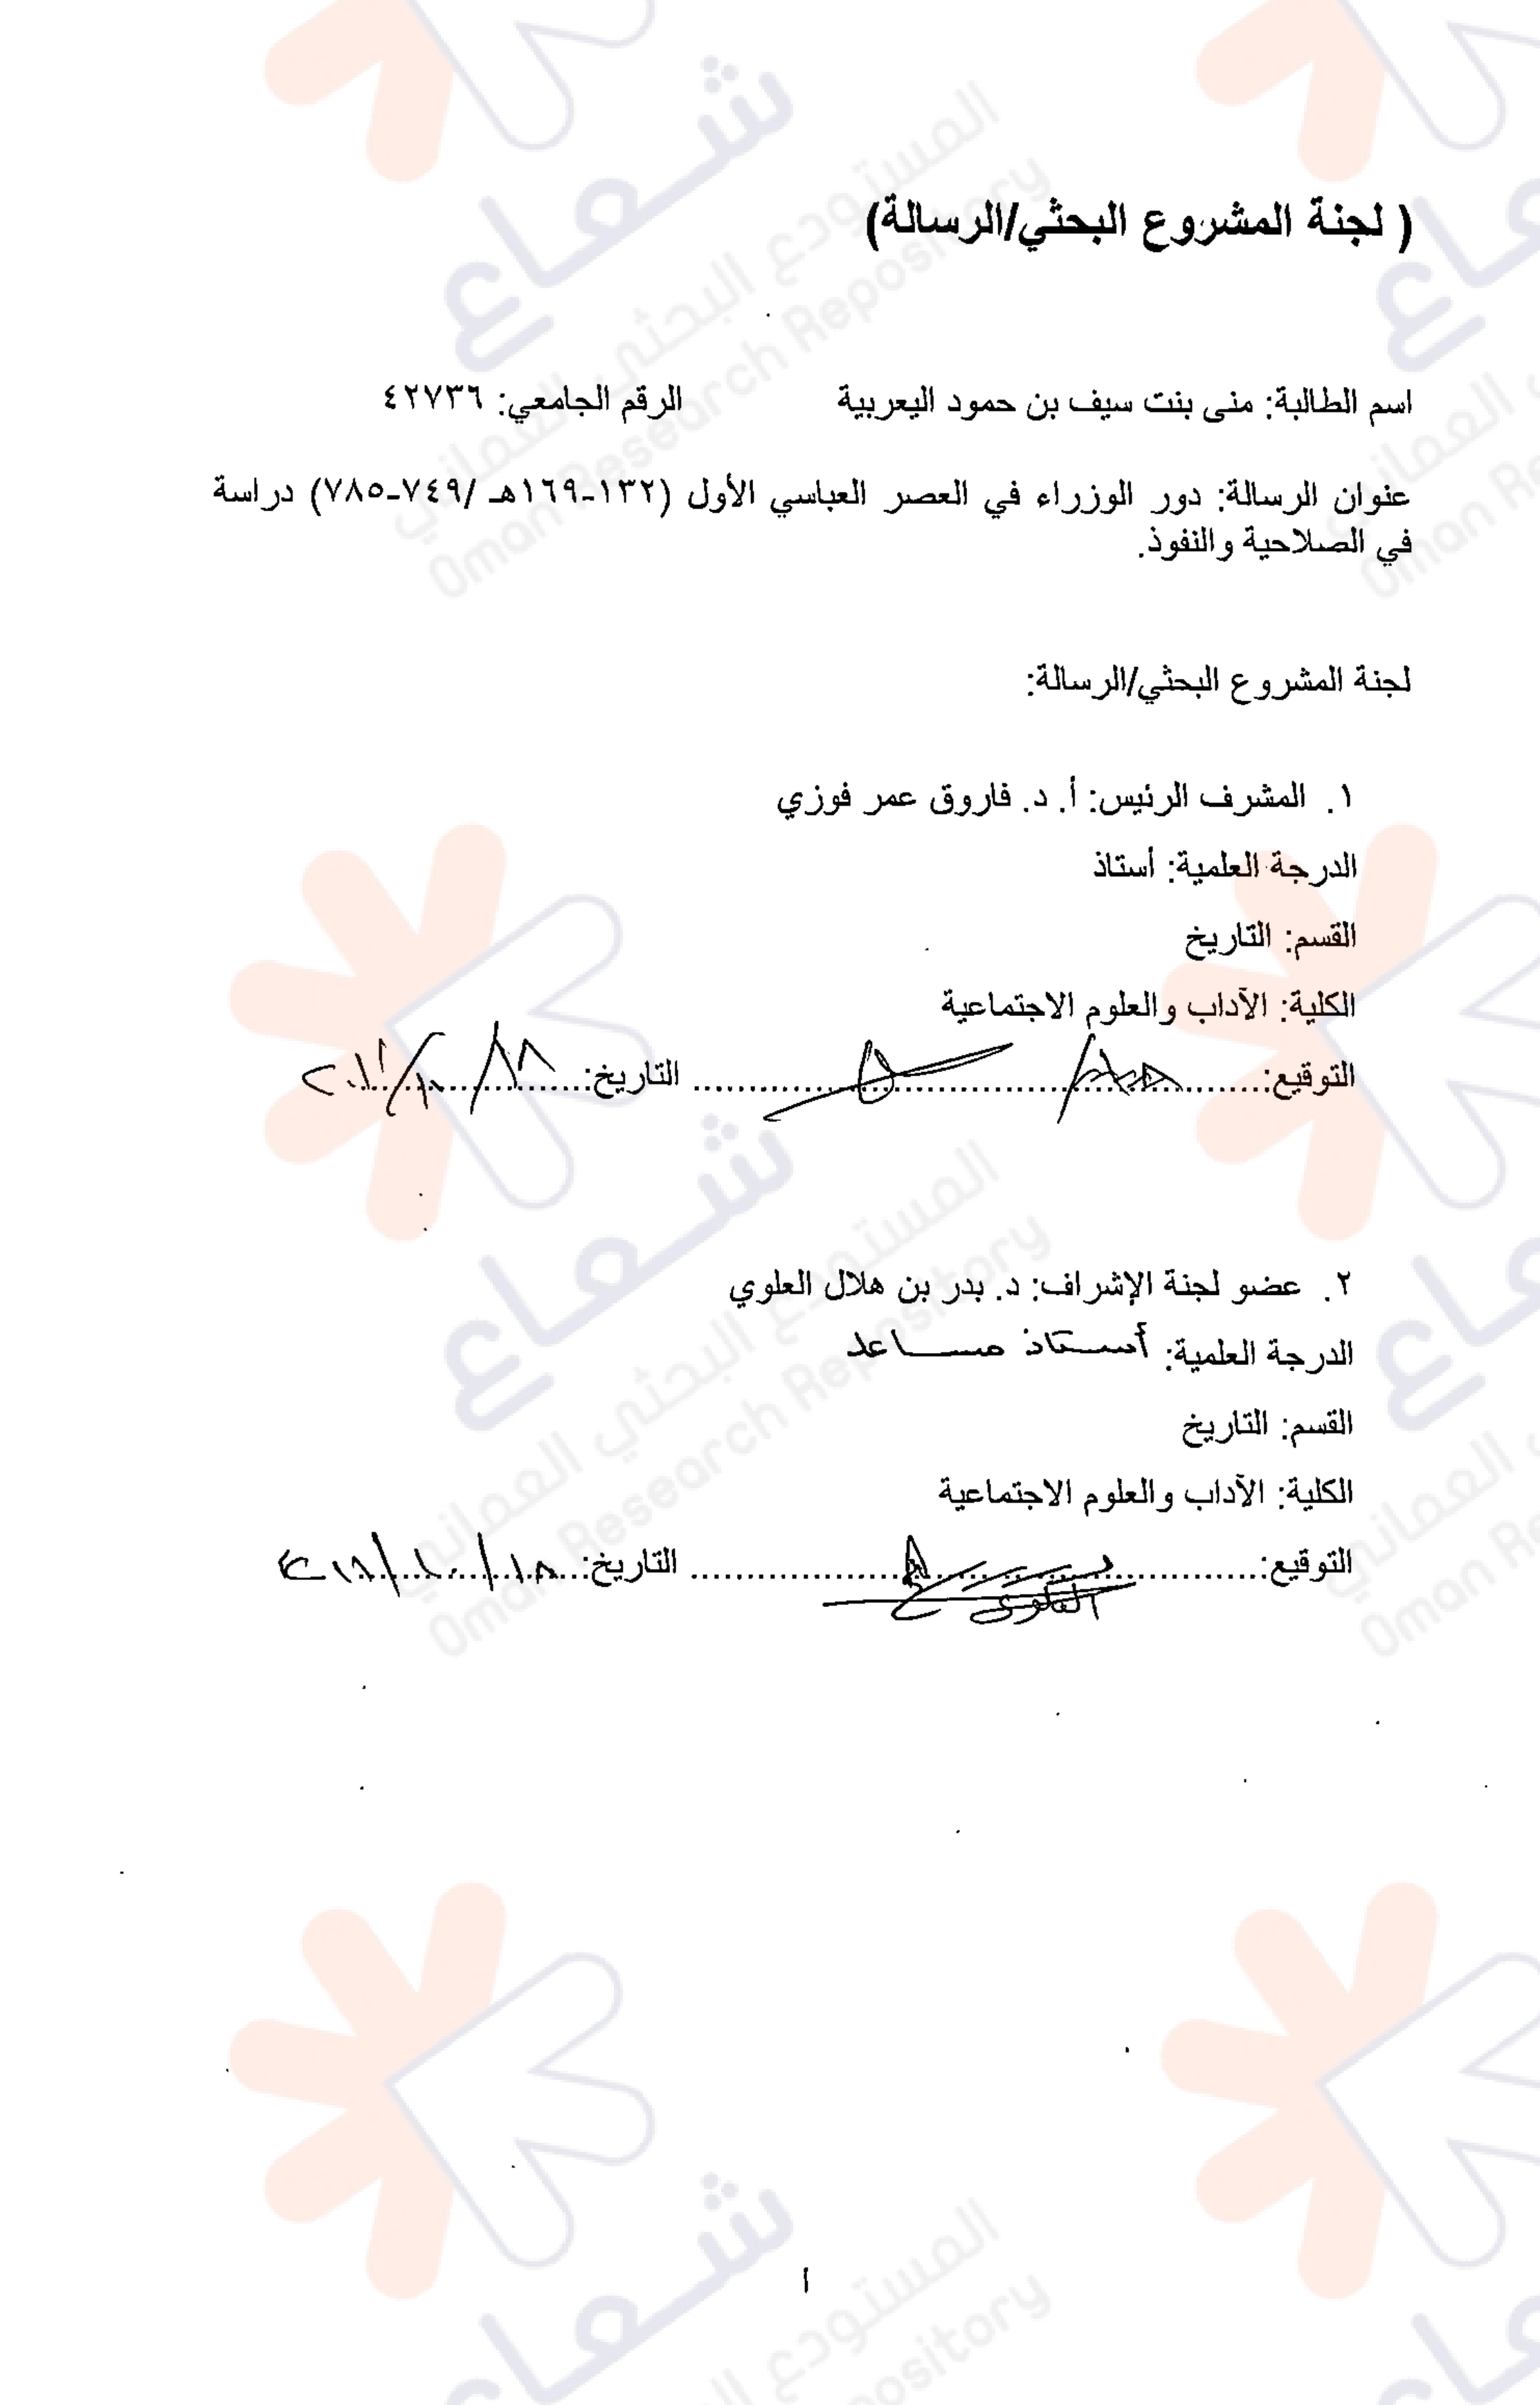 ( لجنة المشروع البحثي/الرسالة)
اسم الطالبة: منى بنت سيف بن حمود اليعربية الرقم الجامعي: ٤٢٧٣٦
عنوان الرسالة: دور الوزراء في العصر العباسي الأول (١٣٢-١٦٩هـ /٧٤٩-٧٨٥) دراسة
في الصلاحية والنفوذ.
لجنة المشروع البحثي/الرسالة:
١. المشرف الرئيس: أ. د. فاروق عمر فوزي
الدرجة العلمية: أستاذ
القسم: التاريخ
الكلية: الآداب والعلوم الاجتماعية
التوقيع: التاريخ:
٢. عضو لجنة الإشراف: د. بدر بن هلال العلوي
الدرجة العلمية: أستاذ مساعد
القسم: التاريخ
الكلية: الآداب والعلوم الاجتماعية
التوقيع: العلوي التاريخ:
أ
شعاع
المستودع البحثي العماني
Oman Research Repository